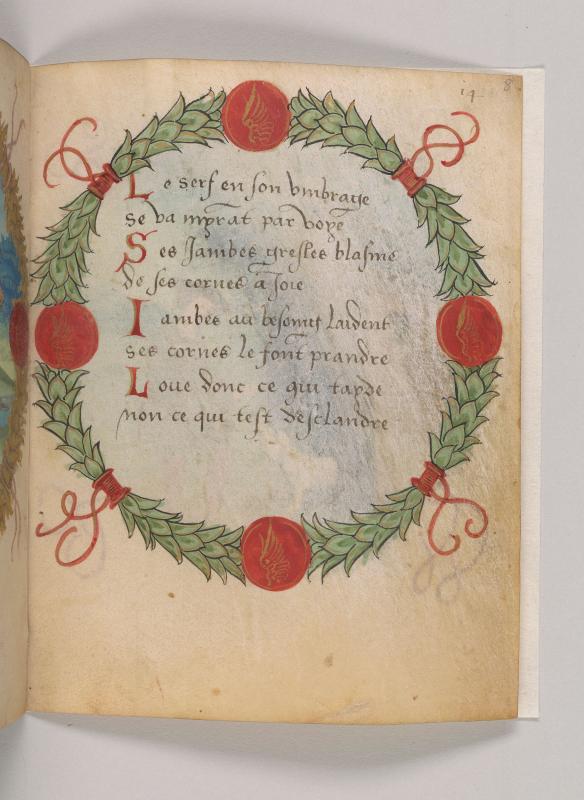 14 8
Le serf en son vmbrage
se va mirãt par voye
Ses Jambes gresles blasme
de ses cornes a Joie
Iambes au besoing laident
ses cornes le font prandre
Loue donc ce qui tayde
non ce qui test desclandre